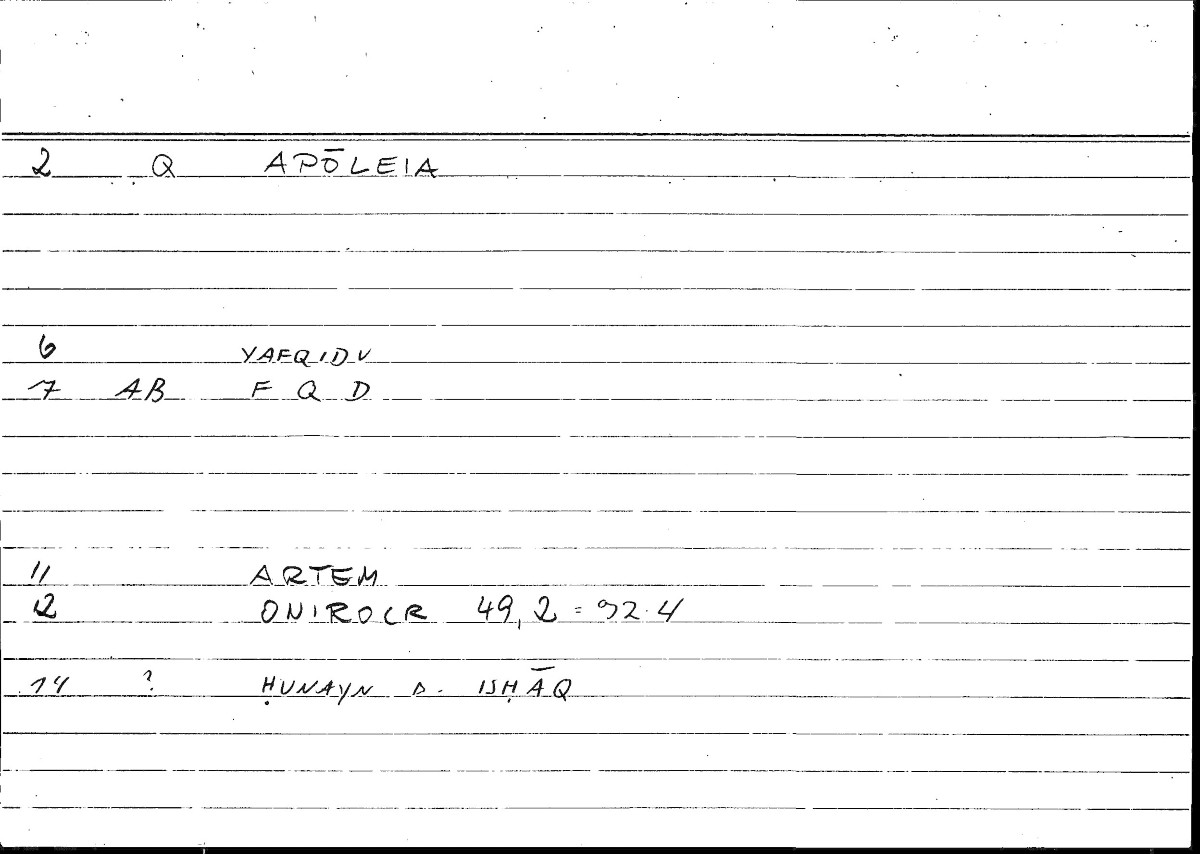 2 Q APŌLEIA
6 YAFQIDU
7 AB F Q D
11 ARTEM
12 ONIROCR 49,2 = 92.4
14 ? ḤUNAYN B. ISḤĀQ